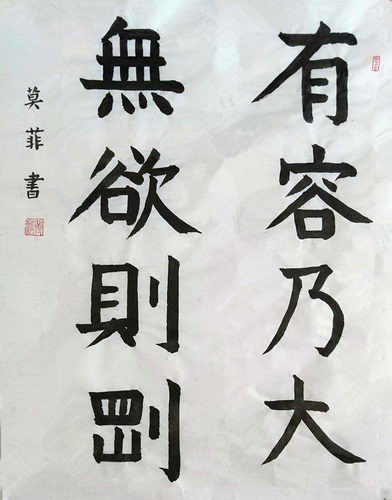 有容乃大
無欲則㓻
莫菲書